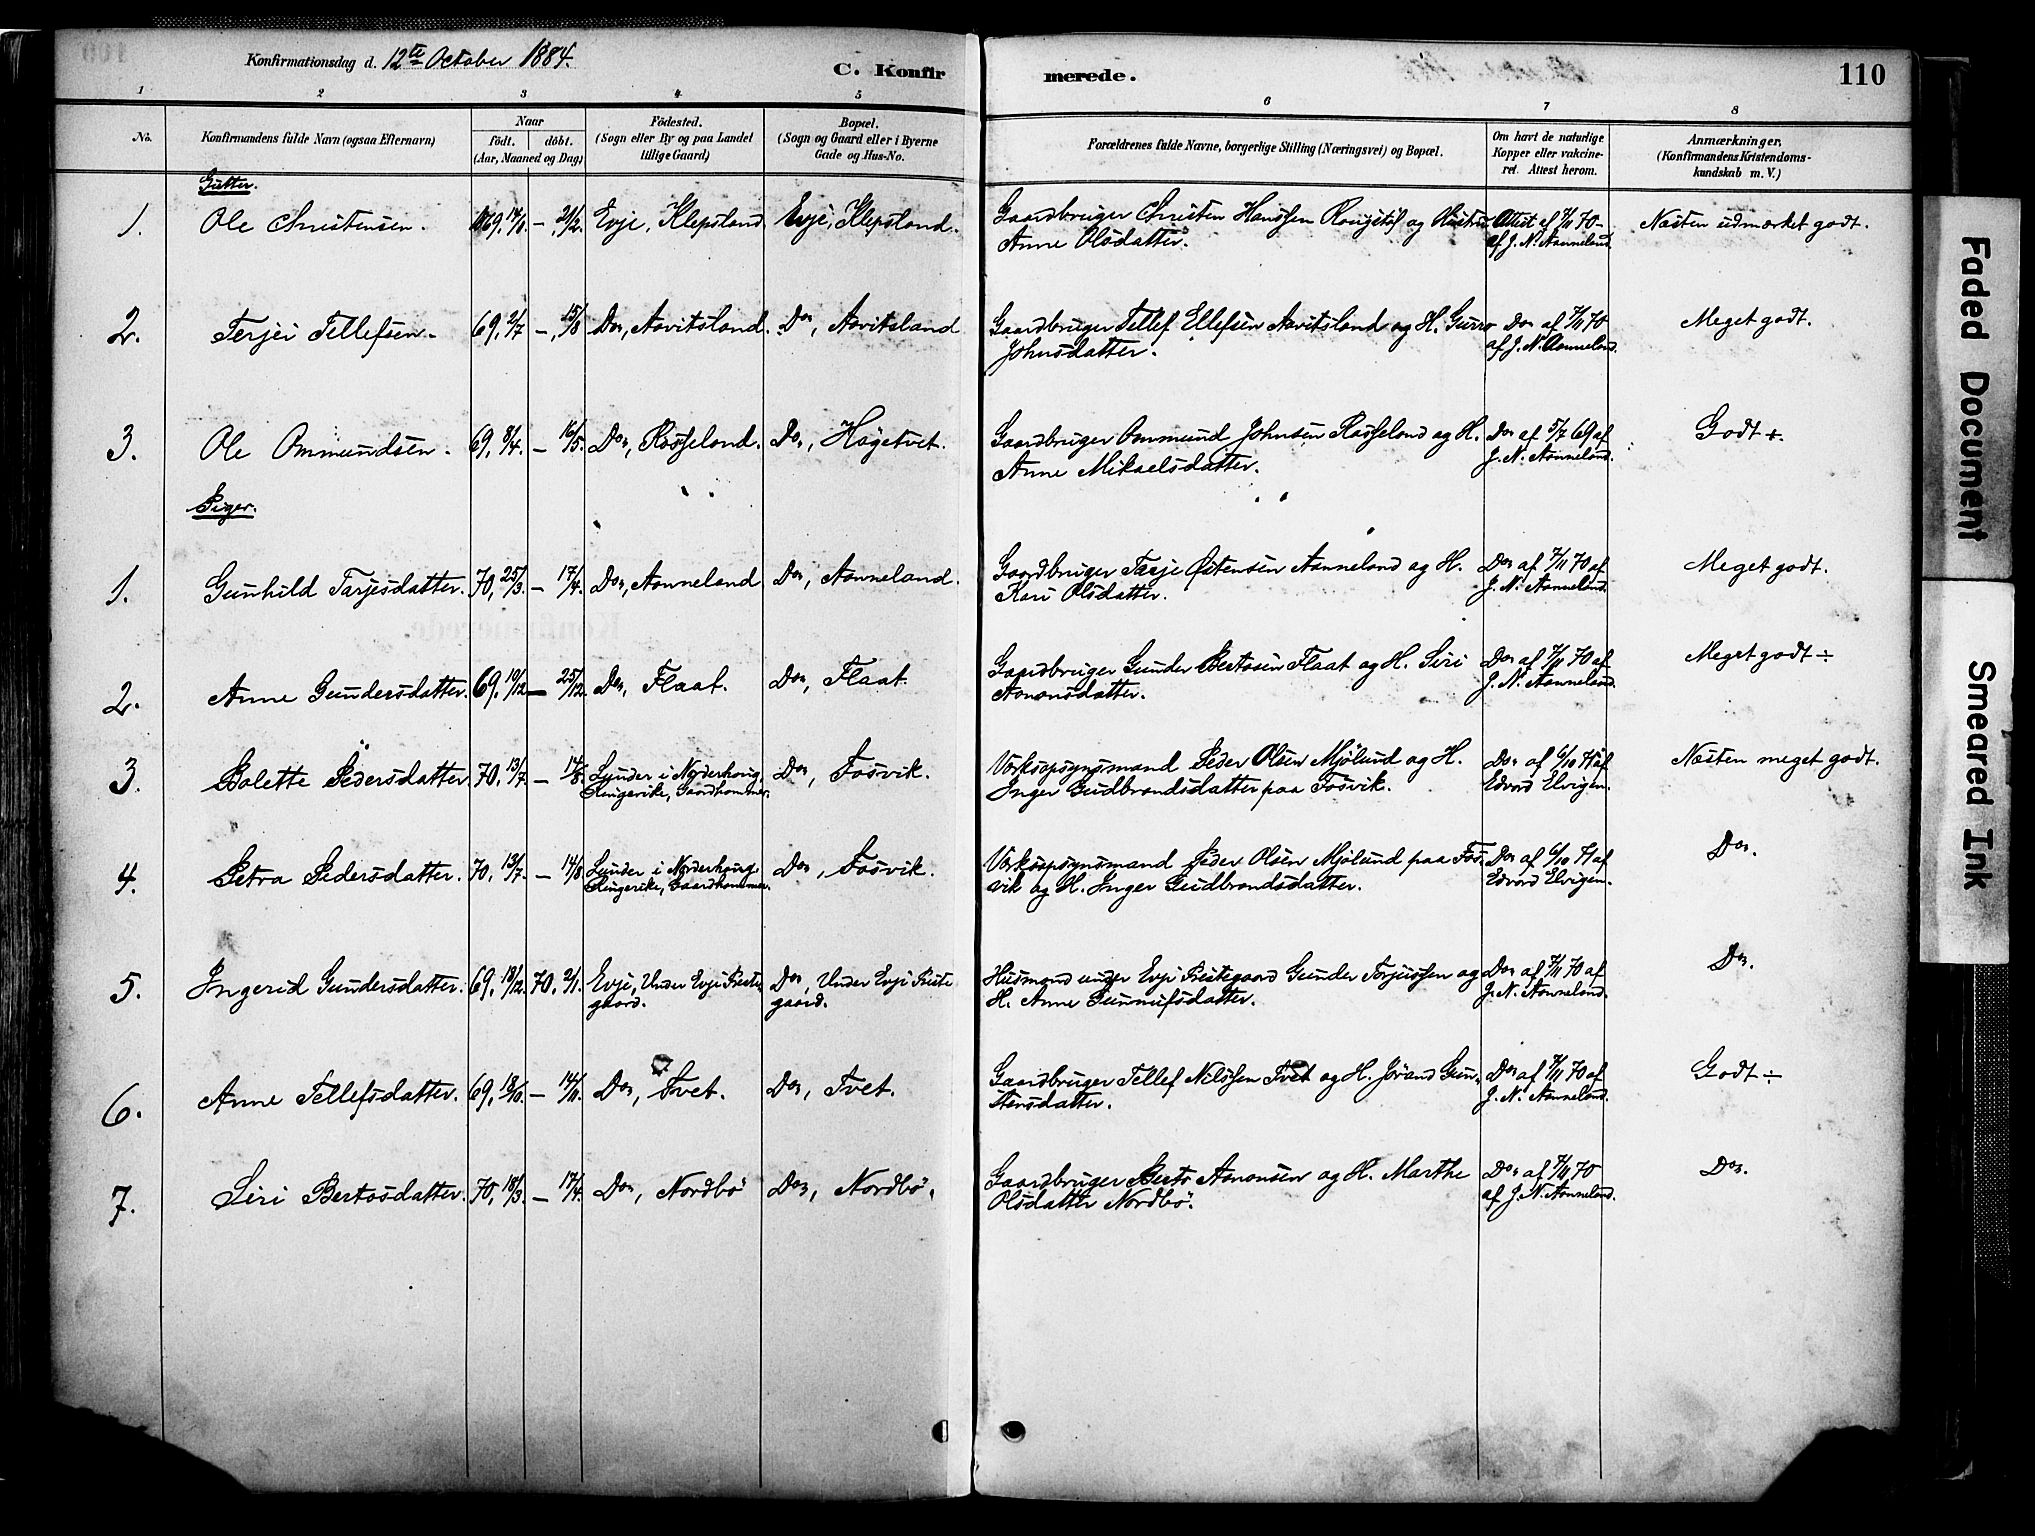 Konfirmationsdag d. 12te October 1884.
C. Konfirmerede.
110
1 2 3 4 5 6 7 8
No.
Konfirmandens fulde Navn (ogsaa Efternavn)
Naar
født. døbt.
(Aar, Maaned og Dag)
Fødested.
(Sogn eller By og paa Landet
tillige Gaard)
Bopæl.
(Sogn og Gaard eller i Byerne
Gade og Hus-No.
Forældrenes fulde Navne, borgerlige Stilling (Næringsvei) og Bopæl.
Om havt de naturlige
Kopper eller vakcine-
ret. Attest herom.
Anmærkninger,
(Konfirmandens Kristendoms-
kundskab m. V.)
Gutter.
1. Ole Christensen. Evje, Klepsland Evje, Klepsland. Gaardbruger Christen Hanssen og Hustru Attest af 7/11 70 - Næsten udmærket godt.
Anne Olsdatter. af J. N. Aanneland
2. Terjei Tellefsen. 69, 2/7 - 15/8 Do, Aavitsland. Do, Aavitsland Gaardbruger Tellef Ellefsen Aavitsland og H. Gurro Do af 7/11 70 Meget godt.
Johnsdatter. af J. N. Aanneland.
3. Ole Ommundsen. 69, 8/4. - 16/5. Do, Rosseland. Do, Høgetvet. Gaardbruger Ommund Johnsen Rosseland og H. Do af 5/7 69 af Godt +.
Anne Mikaelsdatter. J. N. Aanneland.
Piger.
1. Gunhild Tarjesdatter. 70, 25/3. - 17/4. Do, Aanneland Do, Aanneland. Gaardbruger Tarje Østensen Aanneland og H. Do af 7/11 70 af Meget godt.
Kari Olsdatter. J. N. Aanneland.
2. Anne Gundersdatter. 69, 10/12 - 25/12. Do, Flaat. Do, Flaat. Gaardbruger Gunder Bertosen Flaat og H. Siri Do af 7/11 70 af Meget godt ÷
Aanonsdatter. J. N. Aanneland.
3. Bolette Pedersdatter. 70, 13/7. - 14/8. Lunder i Norderhoug, Do, Fosvik. Værksopsynsmand Peder Olsen Mjølund og H. Do af 6/10 71 af Næsten meget godt.
Ringerike, Inger Gudbrandsdatter paa Fosvik. Edvard Elvigen.
4. Petra Pedersdatter. 70, 13/7. - 14/8 Lunder i Norderhoug, Do, Fosvik. Værksopsynsmand Peder Olsen Mjølund paa Fos- Do af 6/10 71 af Do.
Ringerike, vik og H. Inger Gudbrandsdatter. Edvard Elvigen.
5. Ingerid Gundersdatter. 69, 18/12. 70. 2/1. Evje, Under Evje Preste- Do, Under Evje Preste Husmand under Evje Prestegaard Gunder Torjussen og Do af 7/11 70 af Do.
gaard. gaard. H. Anne Gunnufsdatter. J. N. Aanneland.
6. Anne Tellefsdatter. 69, 18/10. - 14/11. Do, Tvet. Do, Tvet. Gaardbruger Tellef Nilssen Tvet og H. Jørand Gun- Do af 7/11 70 af Godt ÷
stensdatter. J. N. Aanneland.
7. Siri Bertosdatter. 70, 18/3. - 17/4. Do, Nordbø Do, Nordbø. Gaardbruger Berto Aanonsen og H. Marthe Do af 7/11 70 Do.
Olsdatter Nordbø. af J. N. Aanneland.
Faded Document
Smeared Ink